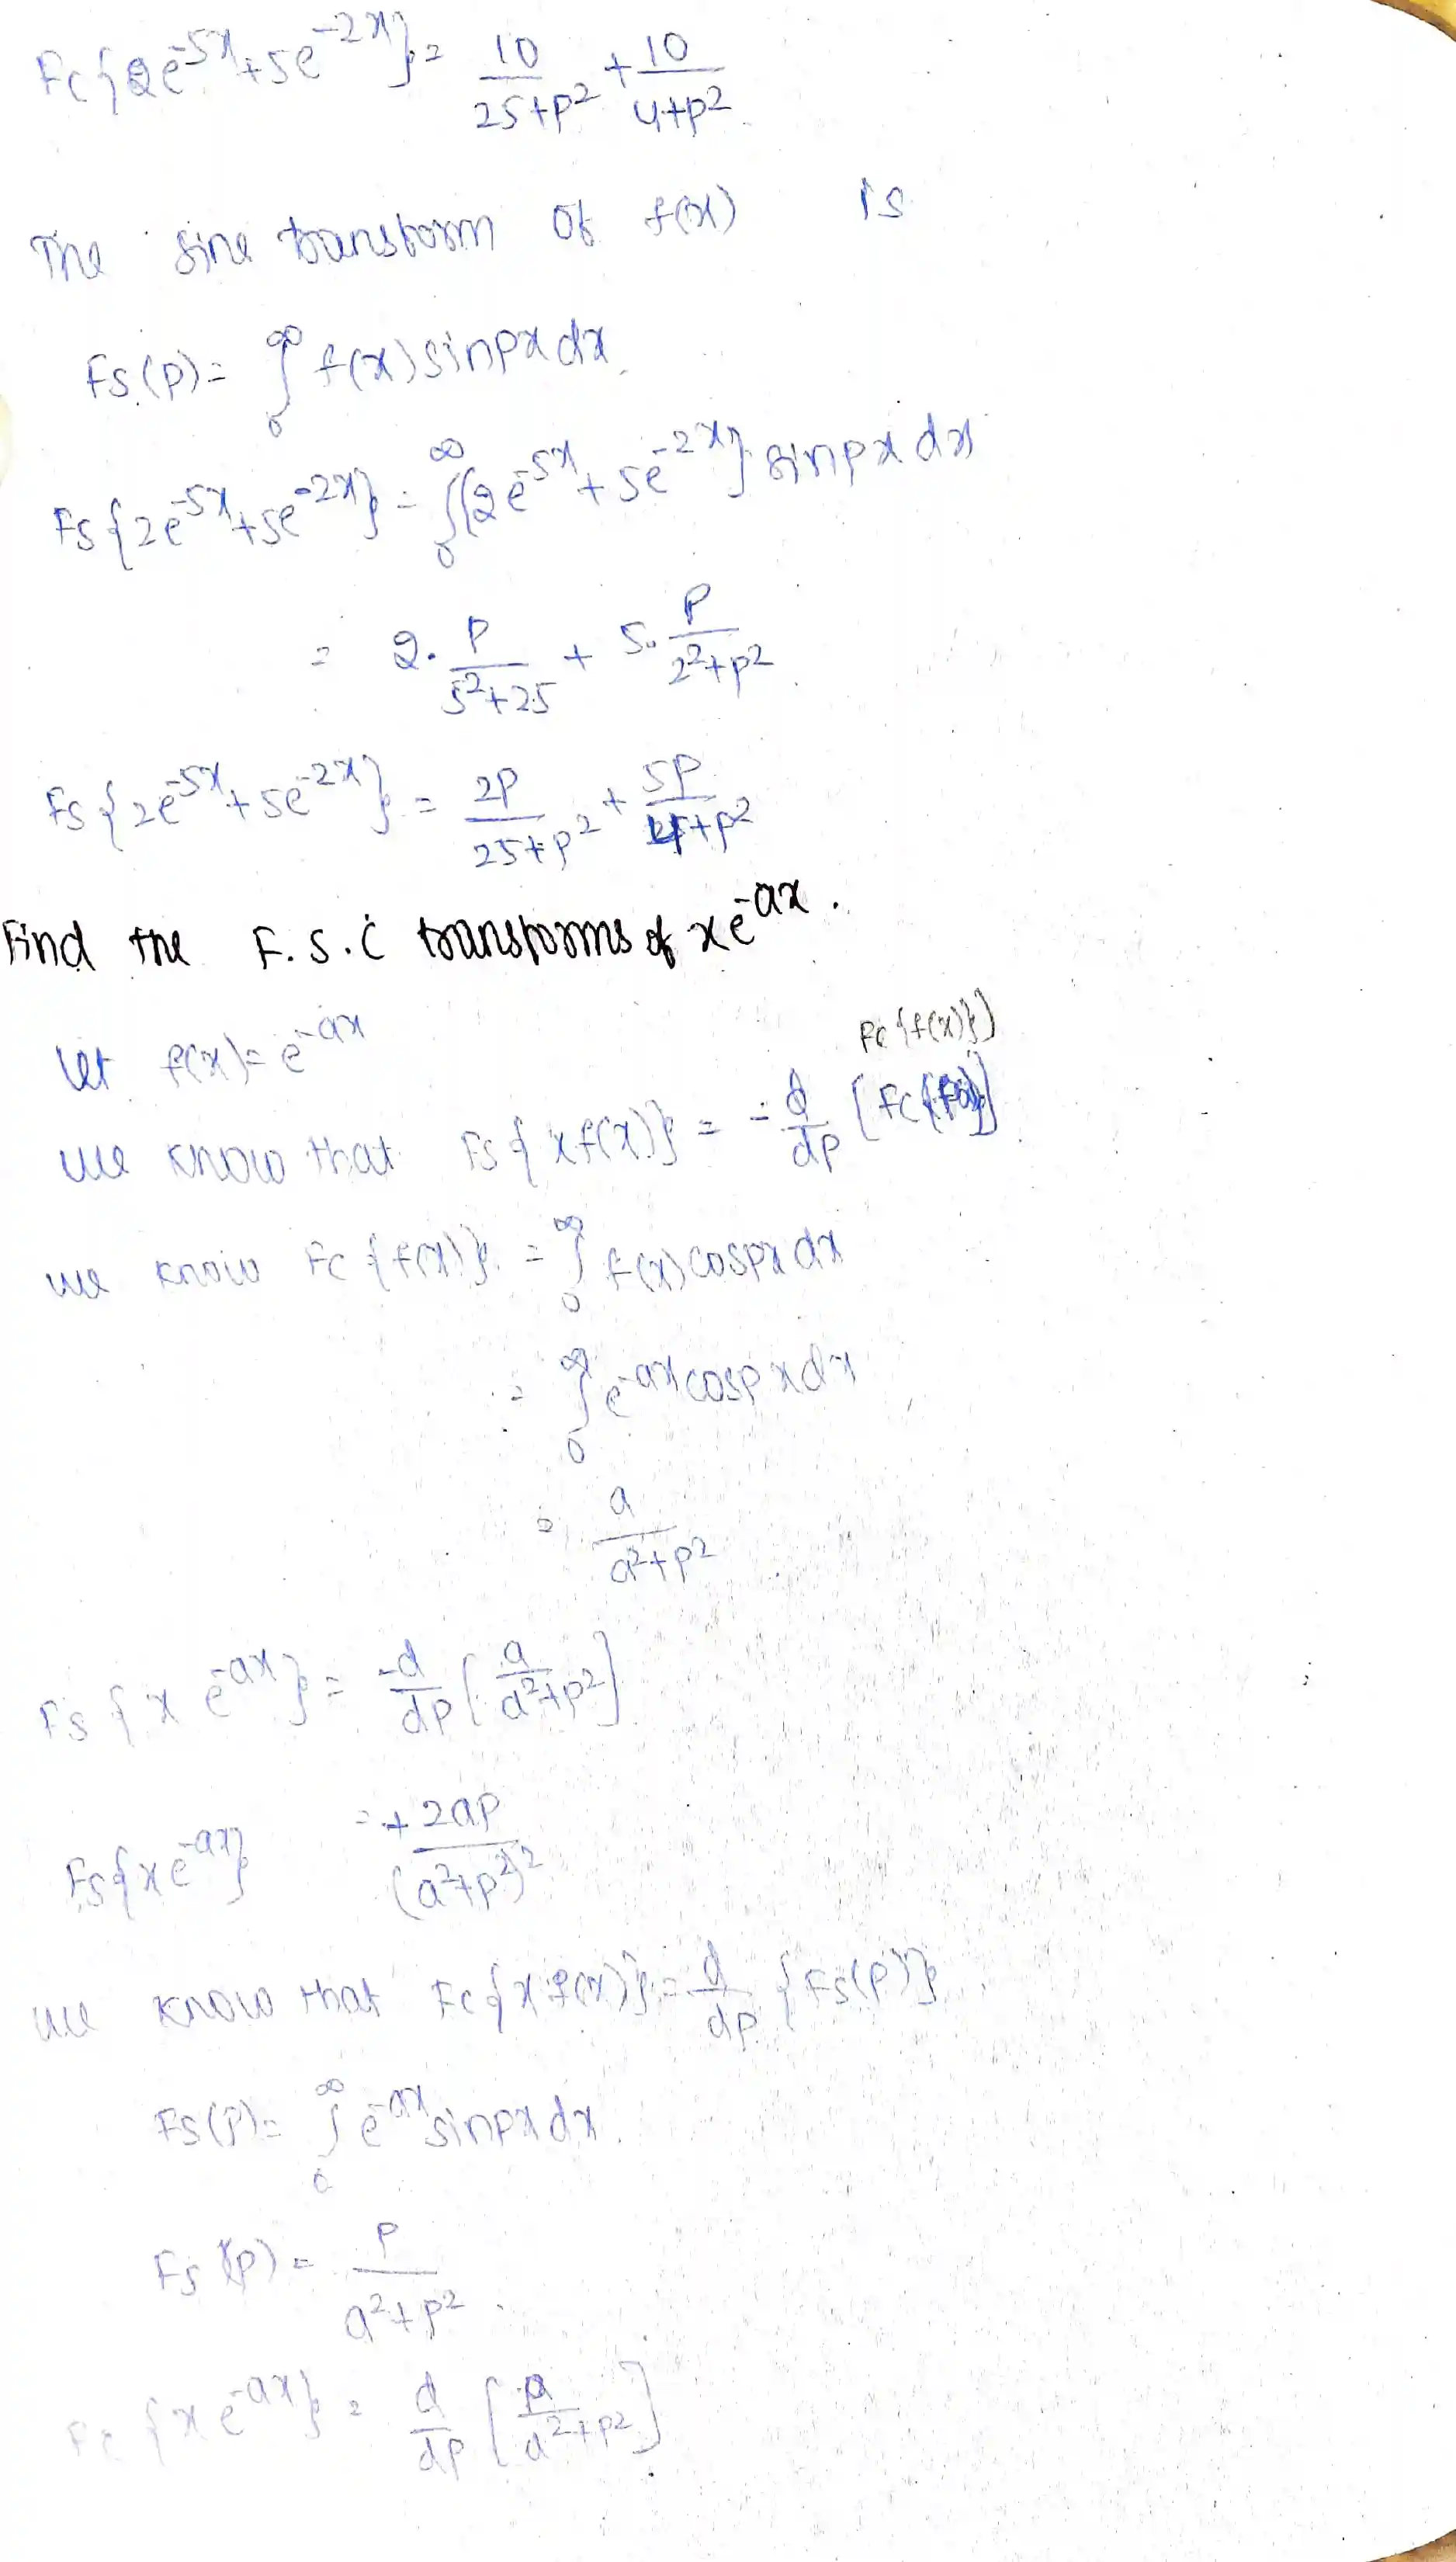 Fc{2e^-5x+5e^-2x}= 10/25+p² + 10/4+p²
The sine transform of f(x) is
Fs(p)= ∫₀^∞ f(x) sinpx dx
Fs{2e^-5x+5e^-2x} = ∫₀^∞ (2e^-5x + 5e^-2x} sinpx dx
= 2. p/5²+25 + 5. p/2²+p²
Fs{2e^-5x+5e^-2x} = 2p/25+p² + 5p/4+p²
Find the F.S.C transforms of xe^-ax.
Let f(x)= e^-ax
Fc{f(x)}]
we know that Fs{xf(x)} = -d/dp [Fc{f(x)}]
we know Fc{f(x)} = ∫₀^∞ f(x) cospx dx
= ∫₀^∞ e^-ax cospx dx
= a/a²+p²
Fs{x e^-ax} = -d/dp [a/a²+p²]
Fs{xe^-ax} = +2ap/(a²+p²)²
we know that Fc{xf(x)} = d/dp {Fs(p)}
Fs(p)= ∫₀^∞ e^-ax sinpx dx.
Fs(p) = p/a²+p².
Fc{x e^-ax} = d/dp [p/a²+p²]